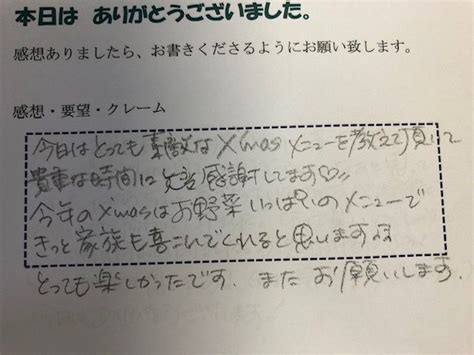 本日は ありがとうございました。
感想ありましたら、お書きくださるようにお願い致します。
感想・要望・クレーム
今日はとっても素敵なX'masメニューを教えて頂いて
貴重な時間に 感謝してます♡〃
今年のX'masはお野菜いっぱいのメニューで
きっと家族も喜こんでくれると思います
とっても楽しかったです。またお願いします。